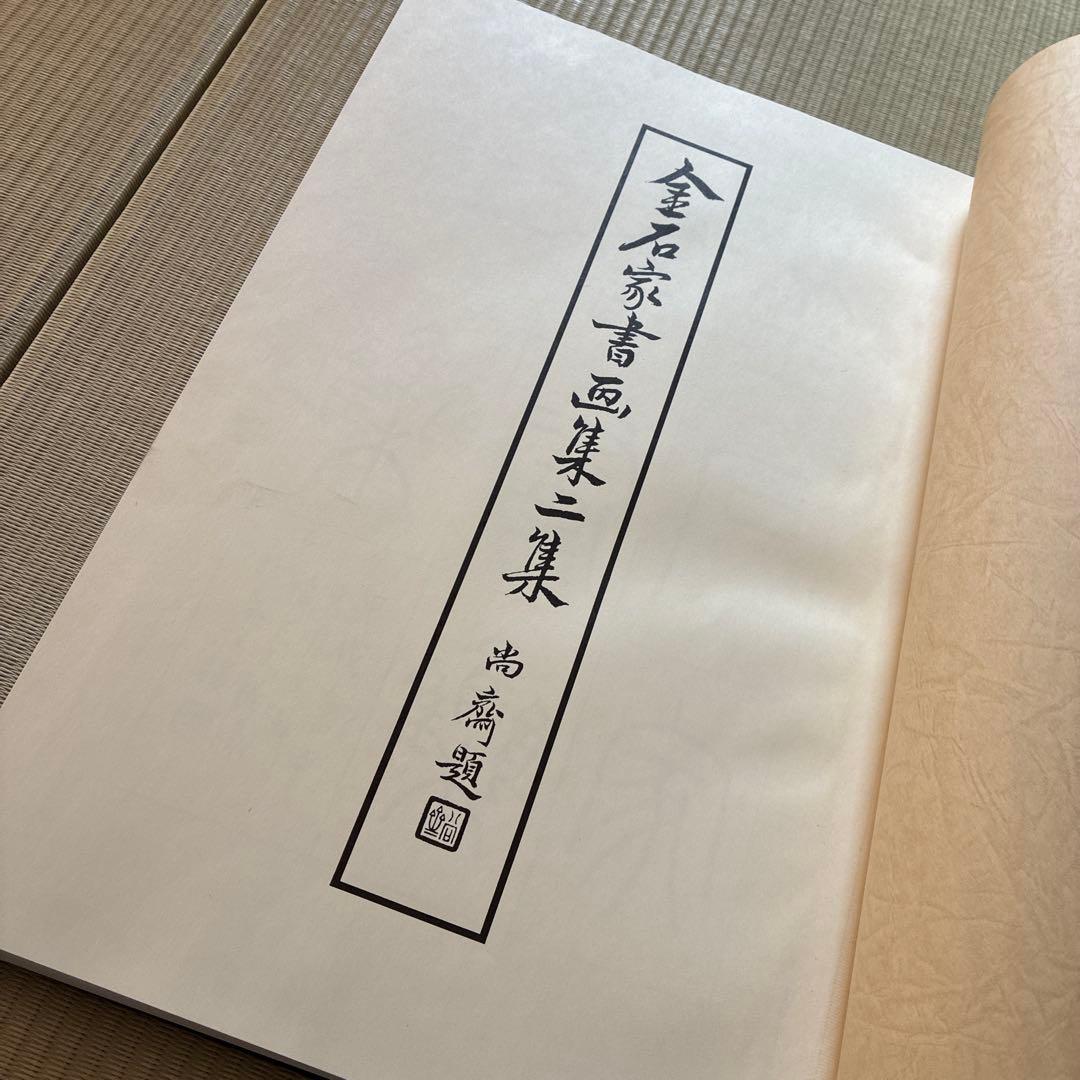 金石家書画集二集
尚齋題